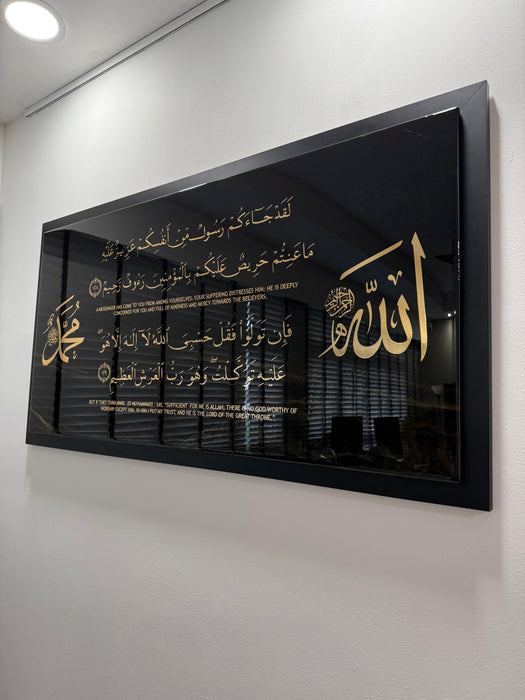 لَقَدْ جَاءَكُمْ رَسُولٌ مِّنْ أَنفُسِكُمْ عَزِيزٌ عَلَيْهِ
مَا عَنِتُّمْ حَرِيصٌ عَلَيْكُم بِالْمُؤْمِنِينَ رَءُوفٌ رَّحِيمٌ
A MESSENGER HAS COME TO YOU FROM AMONG YOURSELVES. YOUR SUFFERING DISTRESSES HIM: HE IS DEEPLY
CONCERNED FOR YOU AND FULL OF KINDNESS AND MERCY TOWARDS THE BELIEVERS.
فَإِن تَوَلَّوْا فَقُلْ حَسْبِيَ اللَّهُ لَا إِلَٰهَ إِلَّا هُوَ
عَلَيْهِ تَوَكَّلْتُ وَهُوَ رَبُّ الْعَرْشِ الْعَظِيمِ
BUT IF THEY TURN AWAY, [O MUHAMMAD], SAY, "SUFFICIENT FOR ME IS ALLAH; THERE IS NO GOD WORTHY OF
WORSHIP EXCEPT HIM. IN HIM I PUT MY TRUST, AND HE IS THE LORD OF THE GREAT THRONE."
الله
محمد